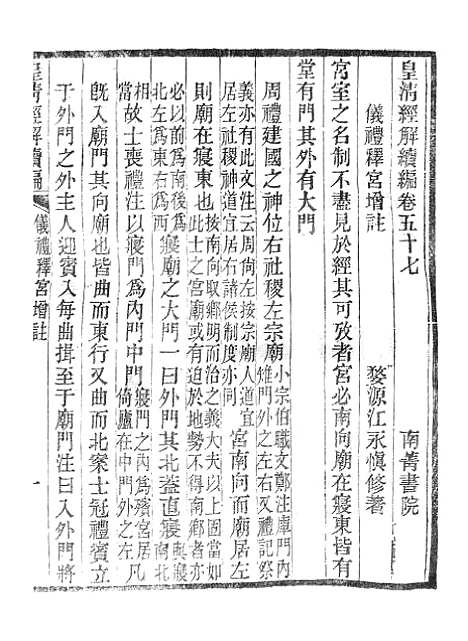 皇清經解續編卷五十七　南菁書院
儀禮釋宮增註　婺源江永愼修著
宮室之名制不盡見於經其可攷者宮必南向廟在寢東皆有
堂有門其外有大門
周禮建國之神位右社稷左宗廟小宗伯職文鄭注庫門內
雉門外之左右又禮記祭
義亦有此文注云周尚左按宗廟人道宜
居左社稷神道宜居右諸侯制度亦同
宮南向而廟居左
則廟在寢東也按南向取鄉明而治之義大夫以上固當如
此士之宮廟或有迫於地勢不得南鄉者亦
必以前為南後為
北左為東右為西
寢廟之大門一曰外門其北蓋直寢廟與寢
相
當故士喪禮注以寢門為內門中門寢門之內為殯宮居凡
倚廬在中門外之左
旣入廟門其向廟也皆曲而東行又曲而北案士冠禮賓立
于外門之外主人迎賓入每曲揖至于廟門注曰入外門將
皇清經解續編
儀禮釋宮增註
一